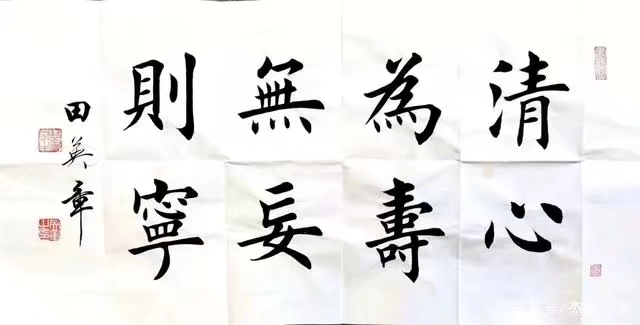 清心
為壽
無妄
則寧
田英章